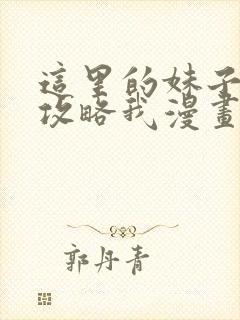 這里的妹子
攻略我漫畫
郭丹青